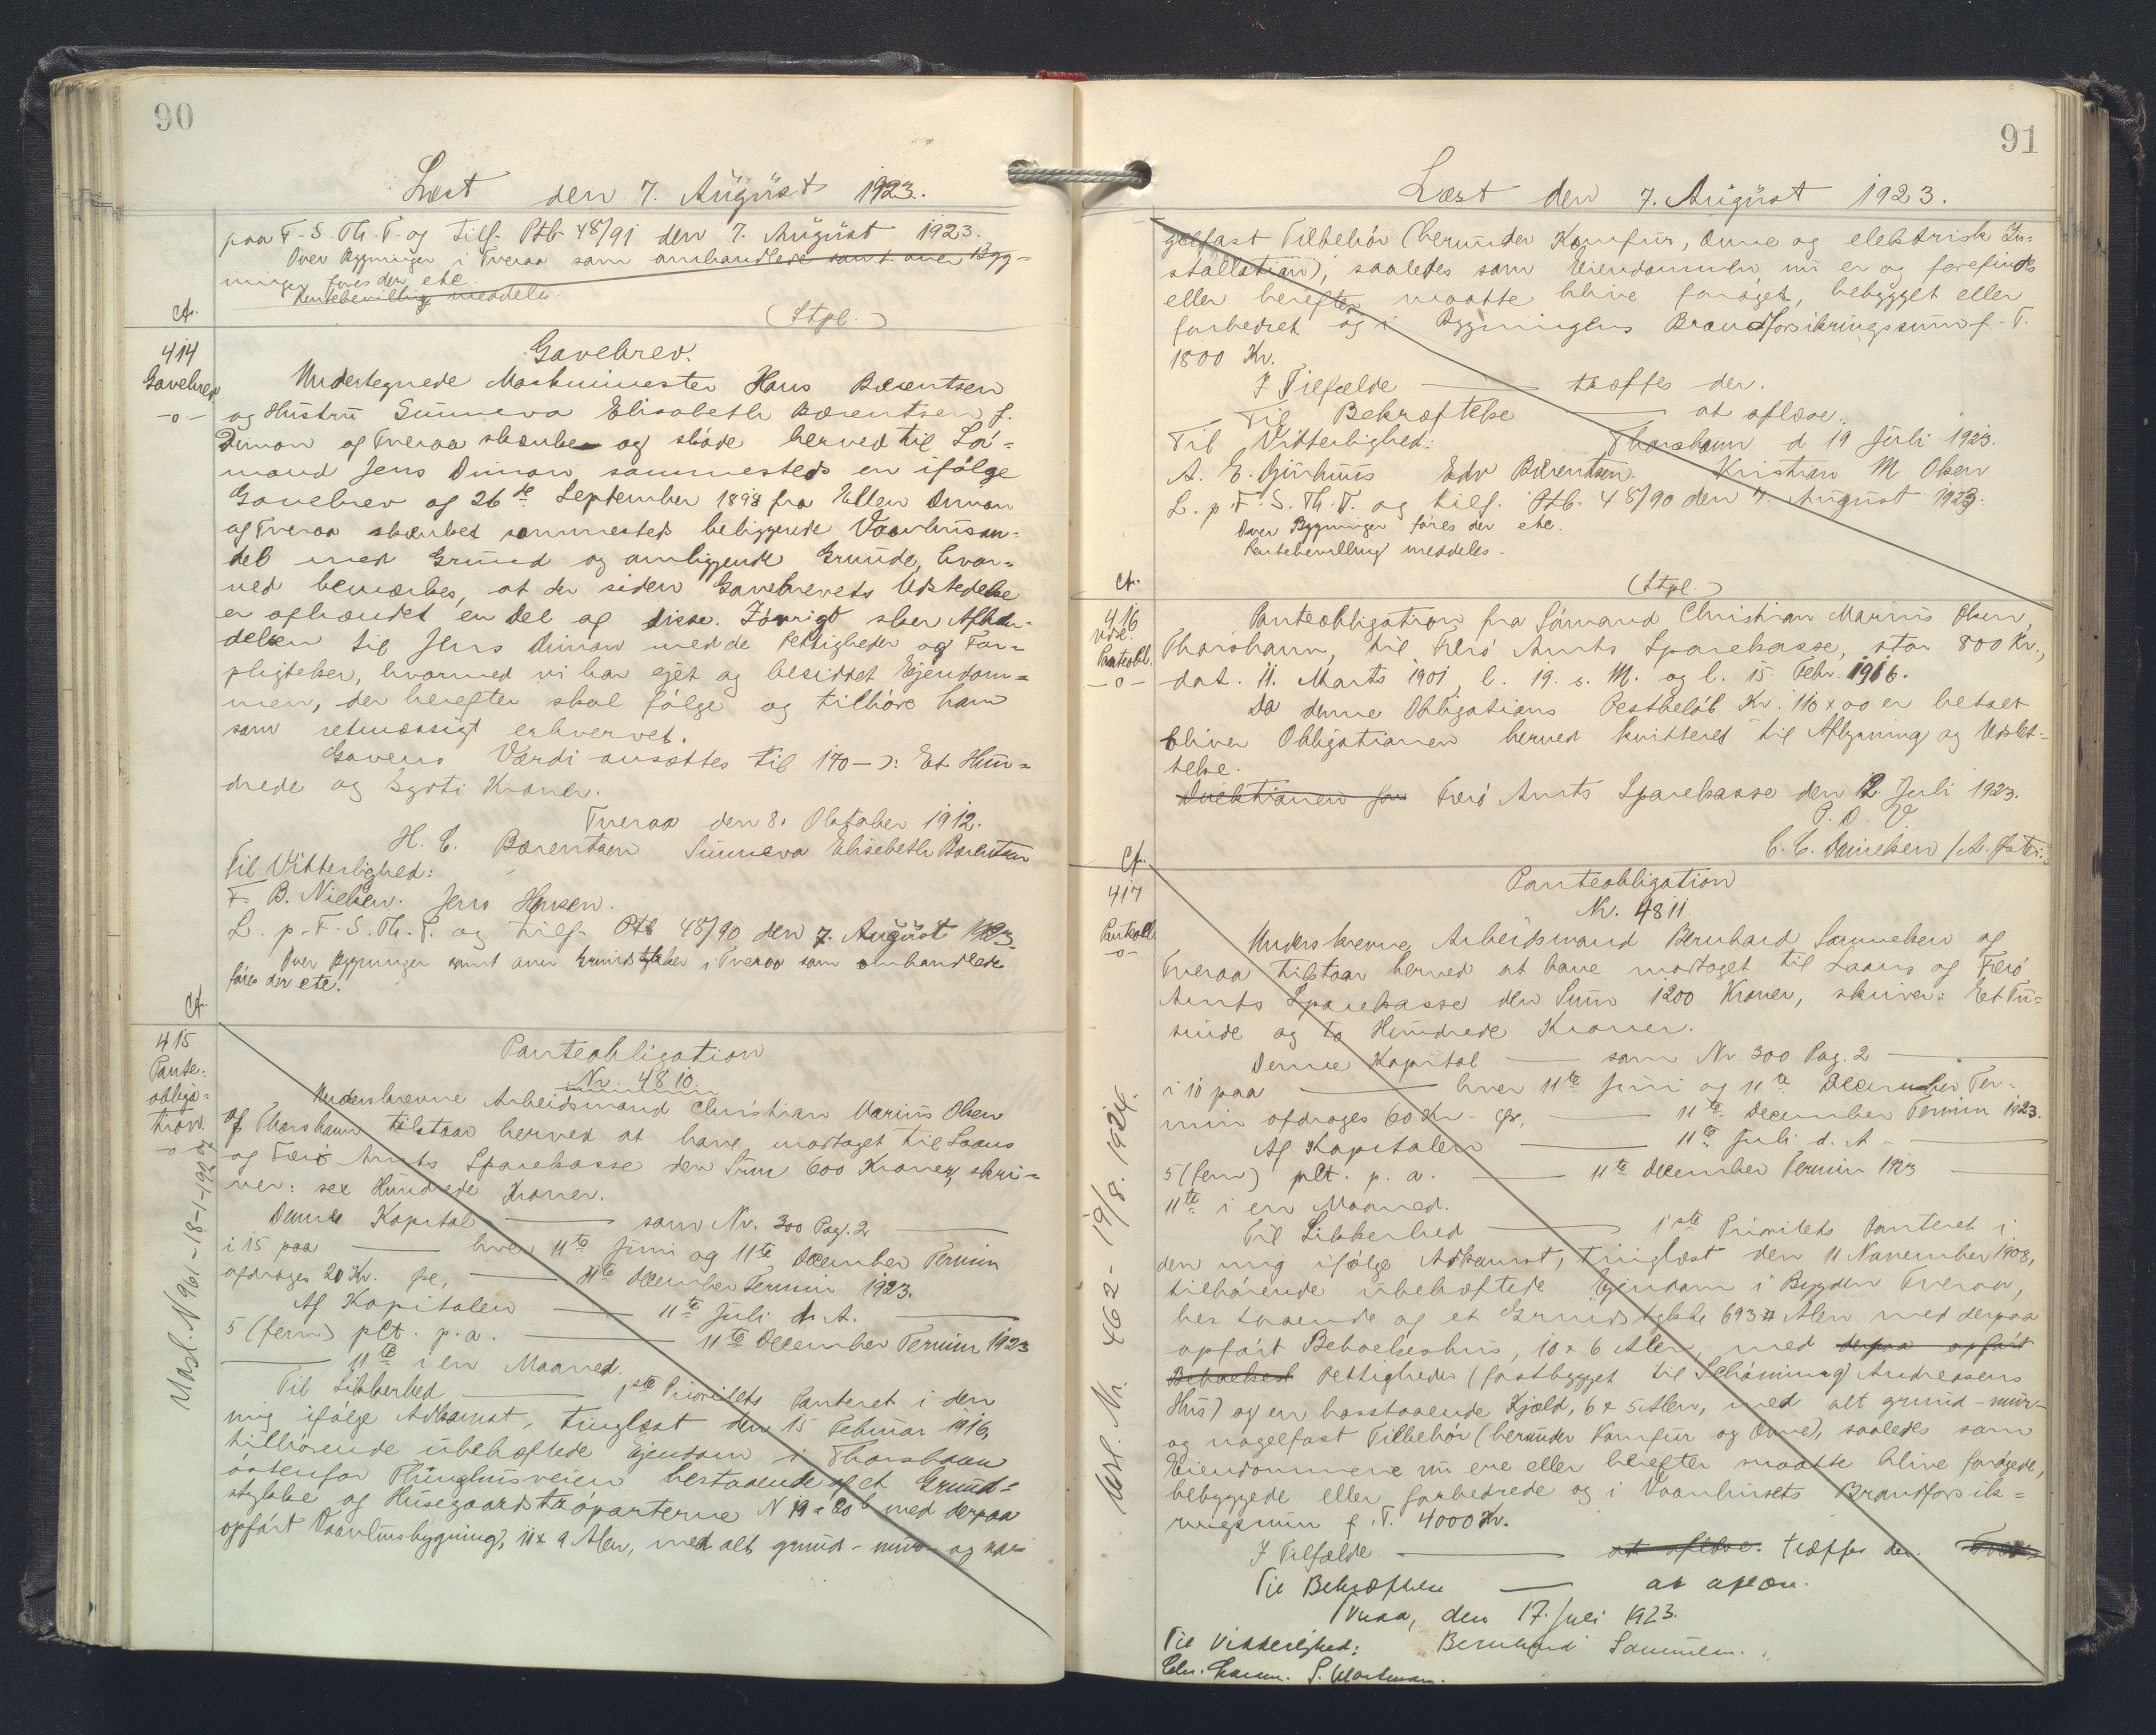 90
Læst den 7. August 1923.
paa F. S. Th. T. og tilf. Ptb 48/91 den 7. August 1923.
Over Bygninger i Tveraa som omhandlede samt over Byg-
ninger føres der etc.
Rentebevilling meddeles.
Af.
(Stpl.)
414
Gavebrev
-o-
Gavebrev.
Undertegnede Maskinmester Hans Bærentsen
og Hustru Sunneva Elisabeth Bærentsen f.
Dimon af Tveraa skænke og skøde herved til Sø-
mand Jens Dimon sammesteds en ifølge
Gavebrev af 26de September 1898 fra Dimon
af Tveraa skænket sammesteds beliggende Vaanhusan-
del med Grund og omliggende Grunde, hvor-
ved bemærkes, at der siden Gavebrevets Udstedelse
er afhændet en Del af disse. Iøvrigt sker Afhæn-
delsen til Jens Dimon med de Rettigheder og For-
pligtelser, hvormed vi har ejet og besiddet Ejendom-
men, der herefter skal følge og tilhøre ham
som retmæssigt erhvervet.
Gavens Værdi ansættes til 170 - ɔ: Et Hun-
drede og Syvti Kroner.
Tveraa den 8. Oktober 1912.
H. C. Bærentsen Sunneva Elisebeth Bærentsen
Til Vitterlighed:
F. B. Nielsen. Jens Hansen.
L. p. F. S. Th. T. og tilf. Ptb 48/90 den 7. August 1923.
Over Bygninger samt over Grundstykker i Tveraa som omhandlede
føres der etc.
Af.
415
Pante-
obliga-
tion.
-o-
Udsl. N 961-18-1-1927
Panteobligation
Nr. 4810.
Underskrevne Arbeidsmand Christian Marius Olsen
af Thorshavn tilstaar herved at have modtaget til Laans
og Færø Amts Sparekasse den Sum 600 Kroner, skri-
ver: sex Hundrede Kroner.
Denne Kapital — som Nr. 300 Pag. 2 —
i 15 paa — hver 11te Juni og 11te December Termin
afdrages 20 Kr. fse, — 11te December Termin 1923.
Af Kapitalen — 11te Juli d. A. —
5 (fem) pCt. p. a. — 11te December Termin 1923
— 11te i en Maaned.
Til Sikkerhed — 1ste Prioritets Panteret i den
mig ifølge Adkomst, tinglæst den 15 Februar 1916,
tilhørende ubehæftede Ejendom i Thorshavn
østenfor Thinghusveien bestaaende af et Grund-
stykke og Husegaardstrøparterne N 19 a 20 b med derpaa
opført Vaanhusbygning, 11 x 9 Alen, med alt grund- mur- og na-
91
Læst den 7. August 1923.
gelfast Tilbehør (herunder Komfur, Ovne og elektrisk In-
stallation), saaledes som Eiendommen nu er og forefindes
eller herefter maatte blive forøget, bebygget eller
forbedret og i Bygningens Brandforsikringssum f. T.
1800 Kr.
I Tilfælde — træffes der.
Til Bekræftelse — at aflæse.
Til Vitterlighed: Thorshavn d 19 Juli 1923.
A. E. Edv Bærentsen. Kristian M Olsen
L. p. F. S. Th. T. og tilf. Ptb. 48/90 den 7. August 1923.
Over Bygninger føres der etc.
Rentebevilling meddeles.
Af.
(Stpl.)
416
Udsl.
Panteobl.
-o-
Panteobligation fra Sømand Christian Marius Olsen,
Thorshavn, til Færø Amts Sparekasse, stor 800 Kr.,
dat. 11. Marts 1901, l. 19. s. M. og l. 15 Febr. 1916.
Da denne Obligations Restbeløb Kr. 116 x 00 er betalt
bliver Obligationen herved kvitteret til Aflysning og Udslet-
telse.
Direktionen for Færø Amts Sparekasse den 12. Juli 1923.
P. D. V.
C. C. Danielsen
Af.
417
Panteobl.
-o-
Udsl. Nr. 462 - 19/8. 1924.
Panteobligation
Nr. 4811
Underskrevne Arbeidsmand Bernhard Samuelsen af
Tveraa tilstaar herved at have modtaget til Laans og Færø
Amts Sparekasse den Sum 1200 Kroner, skriver: Et Tu-
sinde og to Hundrede Kroner.
Denne Kapital — som Nr. 300 Pag. 2 —
i 10 paa — hver 11te Juni og 11te December Ter-
min afdrages 60 Kr. fse, — 11te December Termin 1923.
Af Kapitalen — 11te Juli d. A —
5 (fem) pCt. p. a. — 11te December Termin 1923 —
11te i en Maaned.
Til Sikkerhed — 1ste Prioritets Panteret i
den mig ifølge Adkomst, tinglæst den 11 November 1908,
tilhørende ubehæftede Ejendom i Bygden Tveraa,
bestaaende af et Grundstykke 693 □ Alen med derpaa
opført Beboelseshus, 10 x 6 Alen, med derpaa opført
Beboelses Rettigheder (fastbygget til Andreasens
Hus) og en hosstaaende Kjeld, 6 x 5 Alen, med alt grund- mur-
og nagelfast Tilbehør (herunder Komfur og Ovne), saaledes som
Eiendommene nu ere eller herefter maatte blive forøgede,
bebyggede eller forbedrede og i Vaanhusets Brandforsik-
ringssum f. T. 4000 Kr.
I Tilfælde — at aflæse. træffes der.
Til Bekræftelse — at aflæse.
Tveraa, den 17. Juli 1923.
Til Vitterlighed: Bernhard Samuelsen.
Chr. Larsen. S. Mortensen.